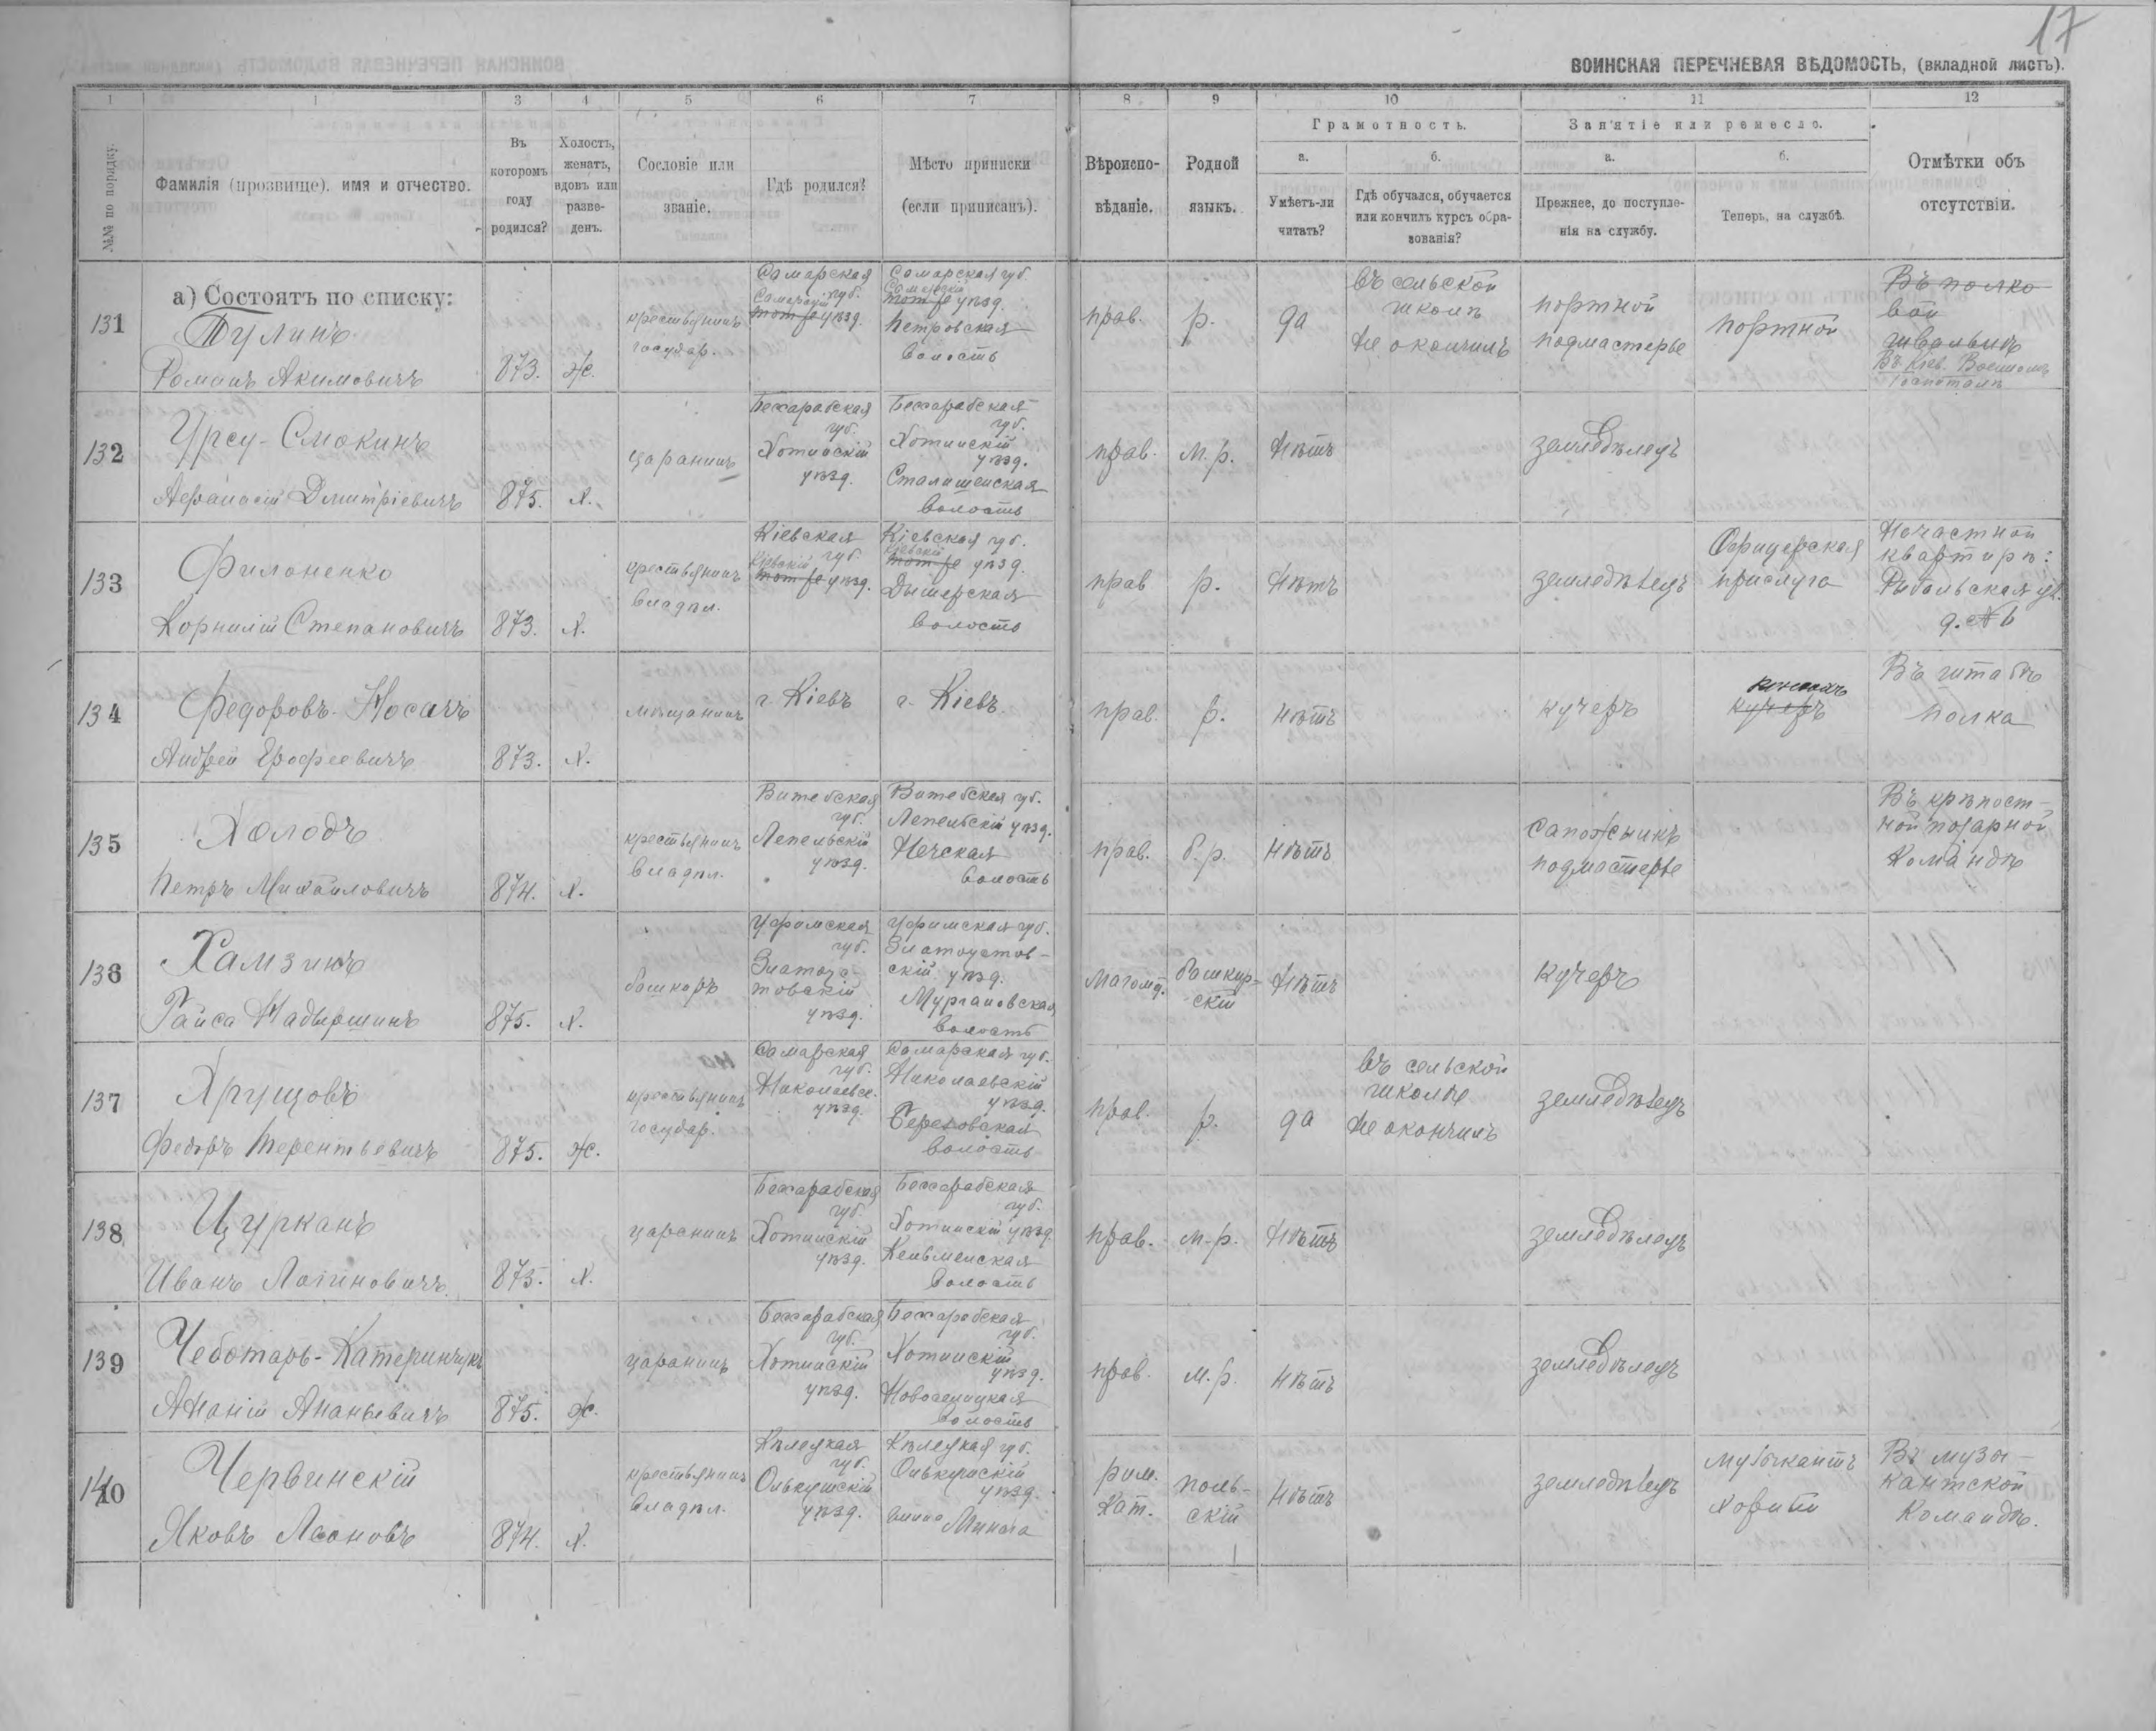 17
ВОИНСКАЯ ПЕРЕЧНЕВАЯ ВѢДОМОСТЬ, (вкладной листъ).
1 1 3 4 5 6 7 8 9 10 11 12
№№ по порядку.
Фамилія (прозвище), имя и отчество.
Въ которомъ году родился?
Холостъ, женатъ, вдовъ или разведенъ.
Сословіе или званіе.
Гдѣ родился?
Мѣсто приписки (если приписанъ).
Вѣроисповѣданіе.
Родной языкъ.
Грамотность.
а. Умѣетъ-ли читать?
б. Гдѣ обучался, обучается или кончилъ курсъ образованія?
Занятіе или ремесло.
а. Прежнее, до поступленія на службу.
б. Теперь, на службѣ.
Отмѣтки объ отсутствіи.
а) Состоятъ по списку:
131 Тулинъ Романъ Акимовичъ 873. ж. крестьянинъ государ. Самарская губ. Самарскій уѣзд. Самарская губ. Самарскій уѣзд. Петровская волость прав. р. да въ сельской школѣ не окончилъ портной подмастерье портной Въ Кіев. Военномъ госпиталѣ
132 Урсу-Смокинъ Афанасій Дмитріевичъ 875. х. царанинъ Бессарабская губ. Хотинскій уѣзд. Бессарабская губ. Хотинскій уѣзд. волость прав. м.р. нѣтъ земледѣлецъ
133 Филоненко Корнилій Степановичъ 873. х. крестьянинъ владѣл. Кіевская губ. Кіевскій уѣзд. Кіевская губ. Кіевскій уѣзд. Дымерская волость прав р. нѣтъ земледѣлецъ Офицерская прислуга На частной квартирѣ: Рыбальская ул. д. № 6
134 Федоровъ-Носачъ Андрей Ерофеевичъ 873. х. мѣщанинъ г. Кіевъ г. Кіевъ прав. р. нѣтъ кучеръ кучеръ Въ штабѣ полка
135 Холодъ Петръ Михайловичъ 874. х. крестьянинъ владѣл. Витебская губ. Лепельскій уѣзд. Витебская губ. Лепельскій уѣзд. волость прав. б.р. нѣтъ сапожникъ подмастерье Въ крѣпостной пожарной командѣ
136 Хамзинъ Гайса Надыршинъ 875. х. башкиръ Уфимская губ. Златоустовскій уѣзд. Уфимская губ. Златоустовскій уѣзд. волость магомед. башкирскій нѣтъ кучеръ
137 Хрущовъ Федоръ Терентьевичъ 875. ж. крестьянинъ государ. Самарская губ. Николаевс. уѣзд. Самарская губ. Николаевскій уѣзд. волость прав. р. да въ сельской школѣ не окончилъ земледѣлецъ
138 Цурканъ Иванъ Логиновичъ 875. х. царанинъ Бессарабская губ. Хотинскій уѣзд. Бессарабская губ. Хотинскій уѣзд. Кельменская волость прав. м.р. нѣтъ земледѣлецъ
139 Чеботарь-Катеринчукъ Ананій Ананьевичъ 875. ж. царанинъ Бессарабская губ. Хотинскій уѣзд. Бессарабская губ. Хотинскій уѣзд. Новоселицкая волость прав. м.р. нѣтъ земледѣлецъ
140 Червинскій Яковъ Леоновъ 874. х. крестьянинъ владѣл. Кѣлецкая губ. Олькушскій уѣзд. Кѣлецкая губ. Олькушскій уѣзд. гмина Минога рим. кат. польскій нѣтъ земледѣлецъ музыкантъ Въ музыкантской командѣ.